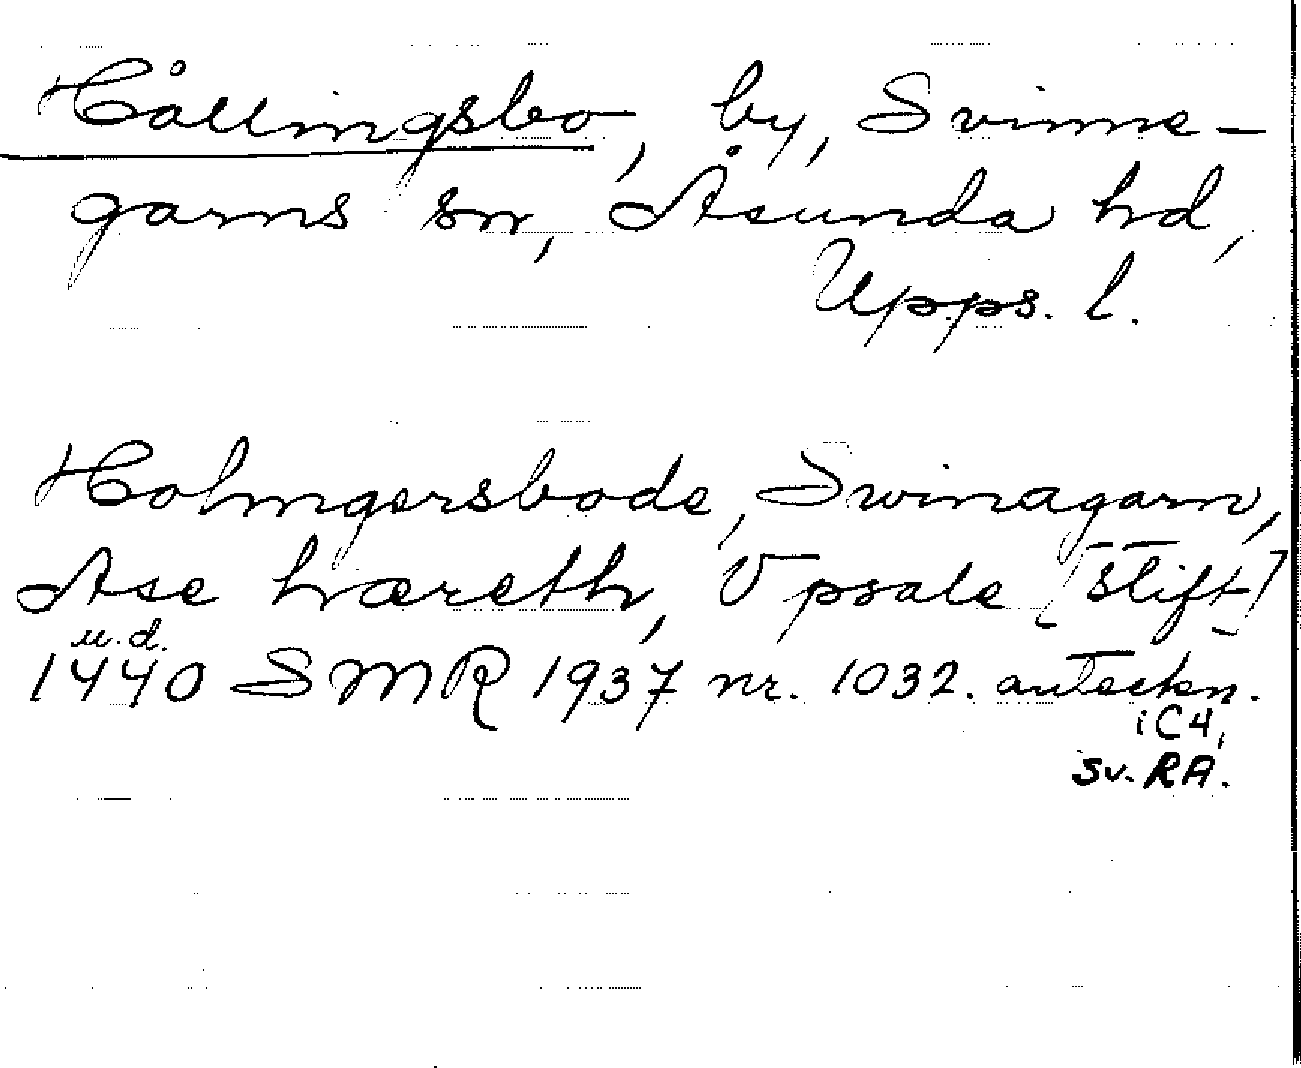 Hållingsbo, by, Svinne-
garns sn, Åsunda hd,
Upps. l.
Holmgersbode, Swinagarn,
Ase hæreth, Vpsale [stift]
u.d.
1440 SMR 1937 nr. 1032. anteckn.
i C4,
Sv. RA.